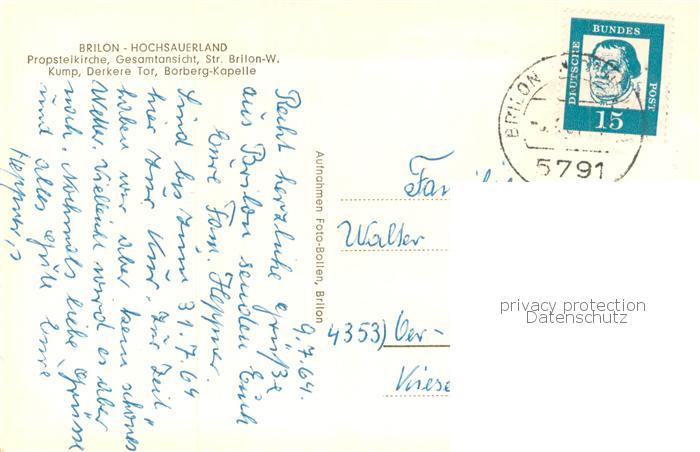 BRILON - HOCHSAUERLAND
Propsteikirche, Gesamtansicht, Str. Brilon-W.
Kump, Derkere Tor, Borberg-Kapelle
9.7.64.
Recht herzliche Grüße
aus Brilon senden Euch
Eure Fam. Heppner.
Sind bis zum 31.7.64
hier zur Kur. Zur Zeit
haben wir aber kein schönes
Wetter. Vielleicht wird es aber
noch. Nochmals liebe Grüsse
und alles gute Eure
Heppner's
Aufnahmen Foto-Bollen, Brilon
DEUTSCHE BUNDES POST
15
BRILON
5791
Fam
Walter
4353) Oer-
privacy protection
Datenschutz